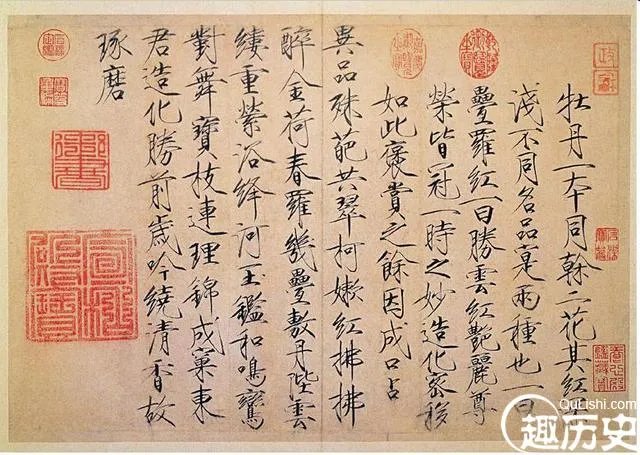 牡丹一本同榦二花其紅深
淺不同名品寔兩種也一曰
疊羅紅一曰勝雲紅艷麗尊
榮皆冠一時之妙造化密移
如此褒賞之餘因成口占
異品殊葩共翠柯嫩紅拂拂
醉金荷春羅幾疊敷丹陛雲
縷重縈浴絳河玉鑑和鳴鸞
對舞寶枝連理錦成窠東
君造化勝前歲吟繞清香故
琢磨
QuLishi.com
趣历史